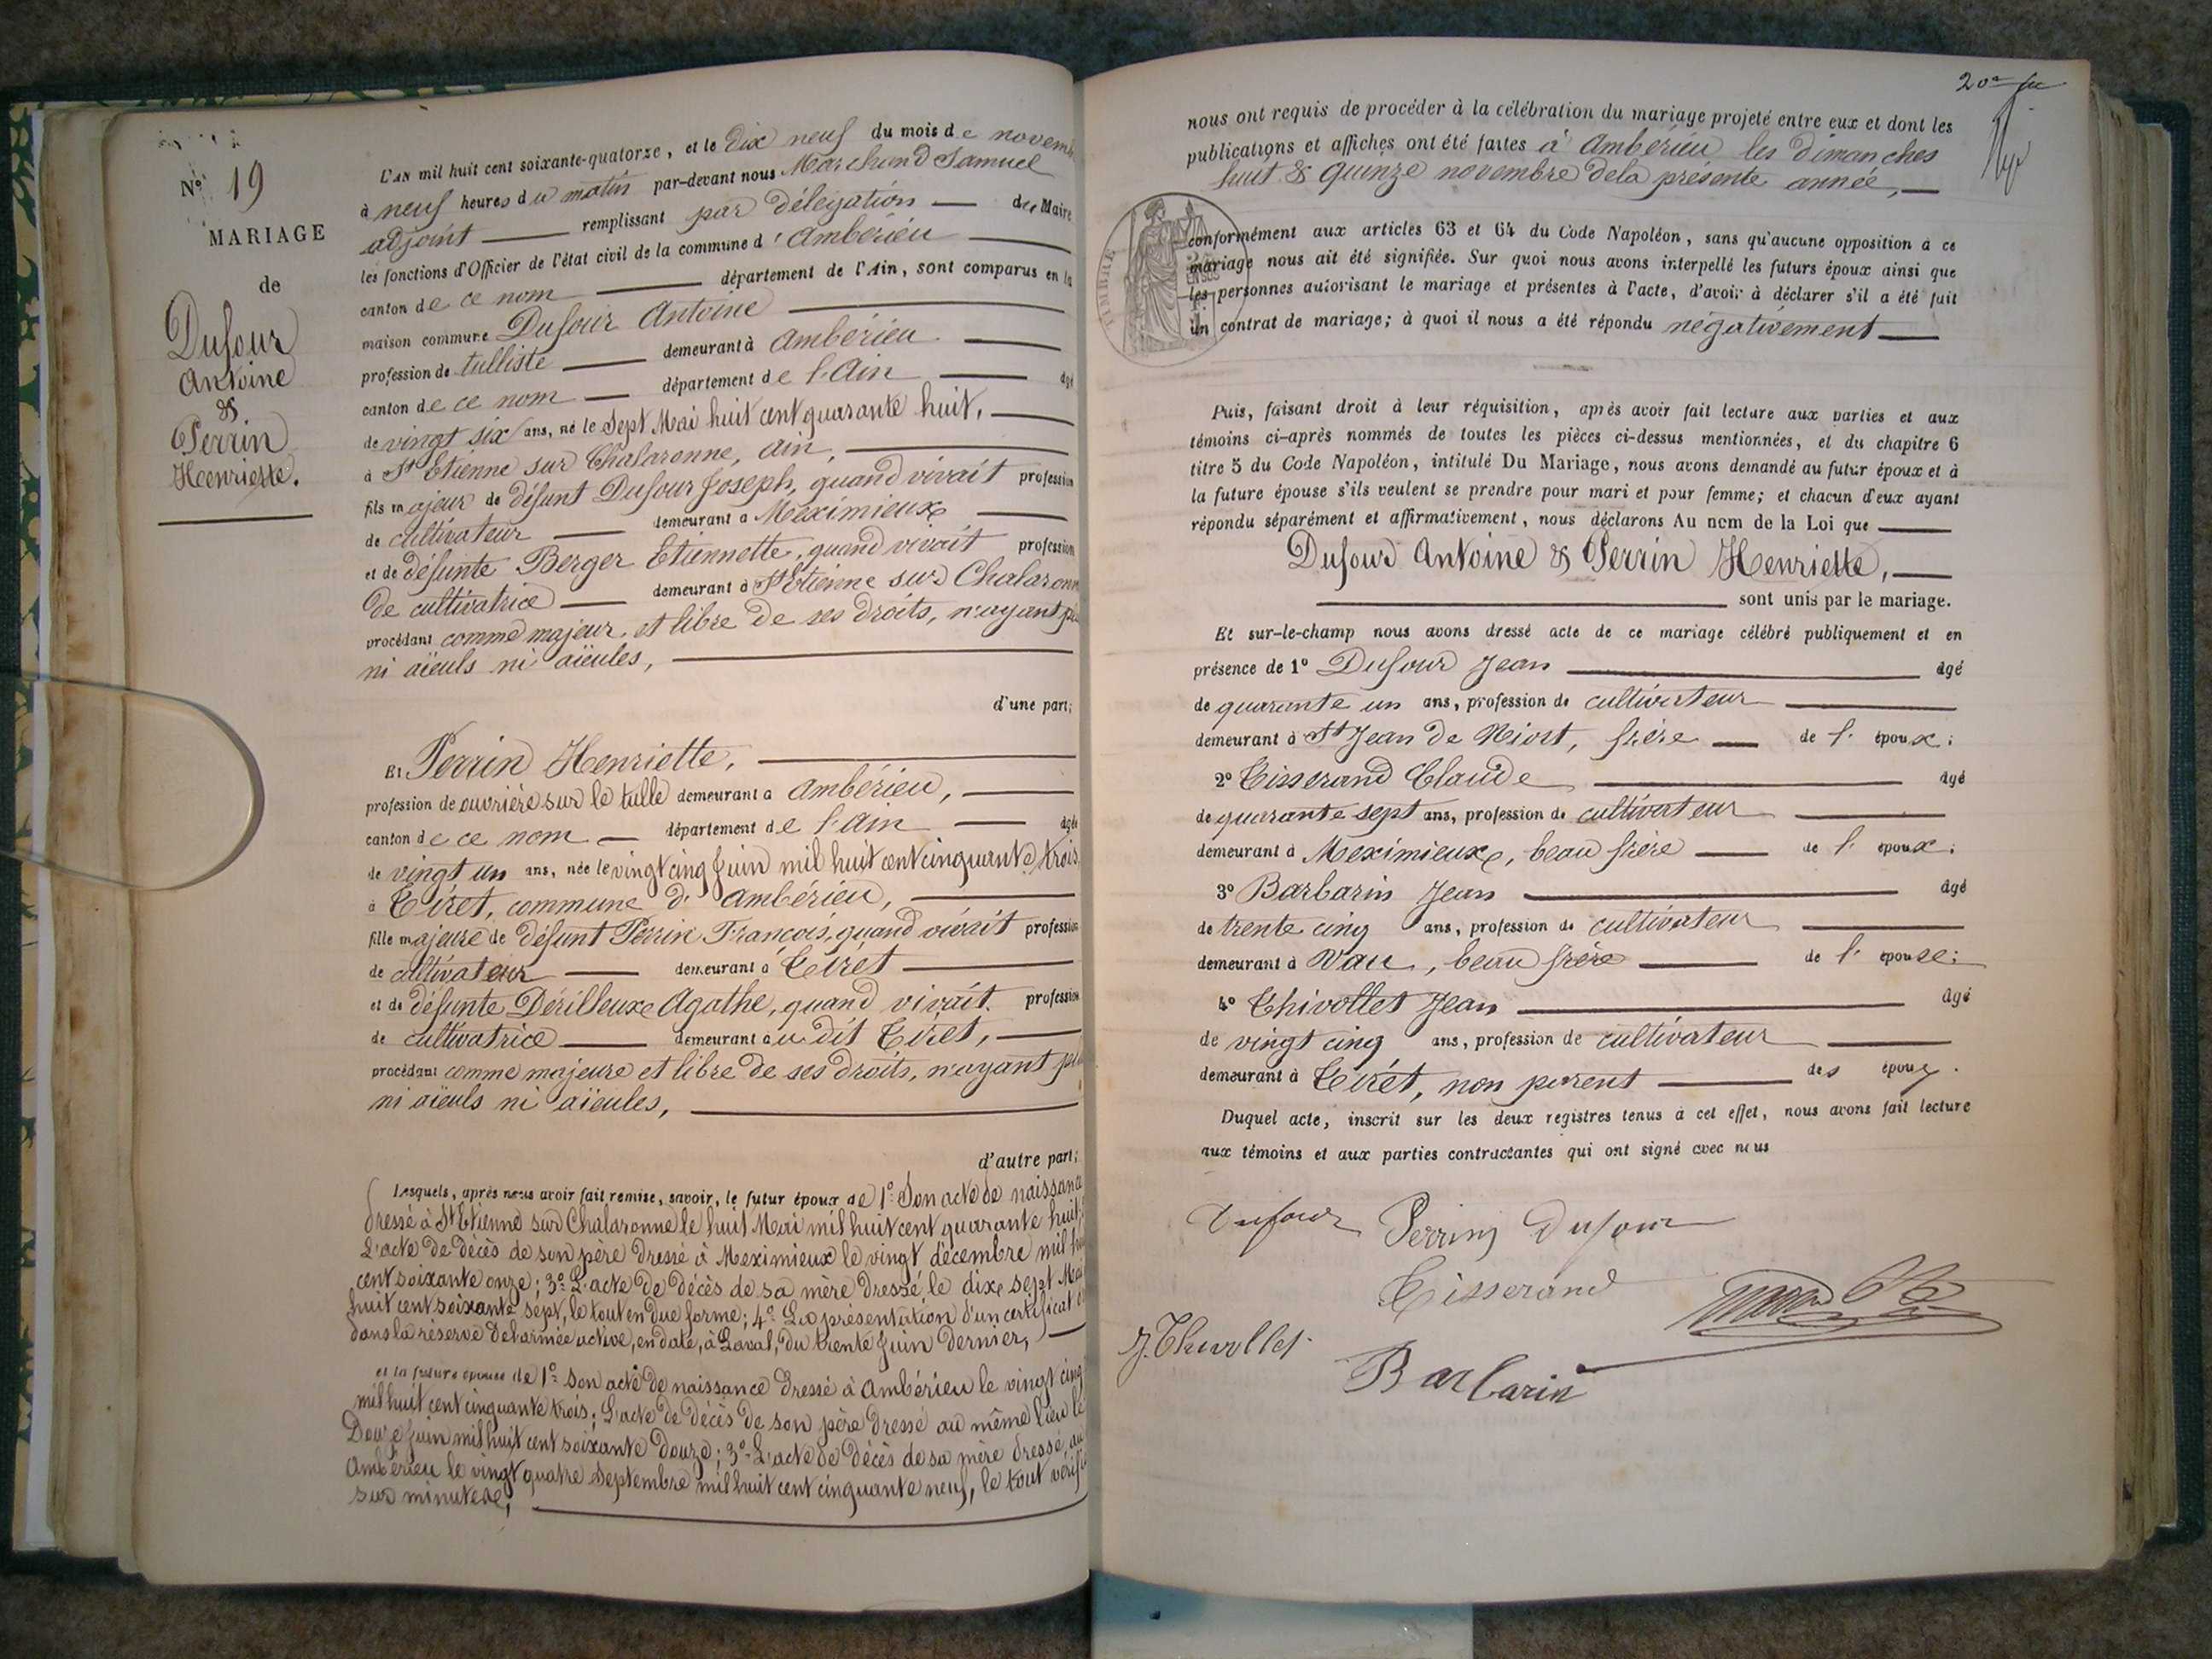 Nº 19
MARIAGE
de
Dufour
Antoine
&
Perrin
Henriette.
L'AN mil huit cent soixante-quatorze, et le dix neuf du mois de novemb
à neuf heures du matin par-devant nous Marchand Samuel
adjoint remplissant par délégation du Maire
les fonctions d'Officier de l'état civil de la commune d'Ambérieu
canton de ce nom département de l'Ain, sont comparus en la
maison commune Dufour Antoine
profession de tulliste demeurant à Ambérieu
canton de ce nom département de l'Ain âgé
de vingt six ans, né le Sept Mai huit cent quarante huit,
à St Etienne sur Chalaronne, Ain,
fils majeur de défunt Dufour Joseph, quand vivait profession
de cultivateur demeurant à Meximieux
et de défunte Berger Etiennette, quand vivait profession
de cultivatrice demeurant à St Etienne sur Chalaronn
procédant comme majeur et libre de ses droits, n'ayant plu
ni aïeuls ni aïeules,
d'une part;
Et Perrin Henriette,
profession de ouvrière sur le tulle demeurant à Ambérieu,
canton de ce nom département de l'Ain âgée
de vingt un ans, née le vingt cinq Juin mil huit cent cinquante trois,
à Tiret, commune d'Ambérieu,
fille majeure de défunt Perrin François, quand vivait profession
de cultivateur demeurant à Tiret
et de défunte Dérilleux Agathe, quand vivait profession
de cultivatrice demeurant au dit Tiret,
procédant comme majeure et libre de ses droits, n'ayant plu
ni aïeuls ni aïeules,
d'autre part;
Lesquels, après nous avoir fait remise, savoir, le futur époux de 1º Son acte de naissanc
dressé à St Etienne sur Chalaronne le huit Mai mil huit cent quarante huit;
L'acte de décès de son père dressé à Meximieux le vingt décembre mil hui
cent soixante onze; 3º L'acte de décès de sa mère dressé, le dix sept Mai
huit cent soixante sept, le tout en due forme; 4º La présentation d'un certificat d
dans la réserve de l'armée active, en date, à Laval, du trente Juin dernier,
et la future épouse de 1º son acte de naissance dressé à Ambérieu le vingt cinq
mil huit cent cinquante trois; L'acte de décès de son père dressé au même lieu le
Douze Juin mil huit cent soixante douze; 3º L'acte de décès de sa mère dressé, au
Ambérieu le vingt quatre Septembre mil huit cent cinquante neuf, le tout vérifi
sur minutere,
nous ont requis de procéder à la célébration du mariage projeté entre eux et dont les
publications et affiches ont été faites à Ambérieu les dimanches
huit & quinze novembre de la présente année,
TIMBRE
conformément aux articles 63 et 64 du Code Napoléon, sans qu'aucune opposition à ce
mariage nous ait été signifiée. Sur quoi nous avons interpellé les futurs époux ainsi que
les personnes autorisant le mariage et présentes à l'acte, d'avoir à déclarer s'il a été fait
un contrat de mariage; à quoi il nous a été répondu négativement
Puis, faisant droit à leur réquisition, après avoir fait lecture aux parties et aux
témoins ci-après nommés de toutes les pièces ci-dessus mentionnées, et du chapitre 6
titre 5 du Code Napoléon, intitulé Du Mariage, nous avons demandé au futur époux et à
la future épouse s'ils veulent se prendre pour mari et pour femme; et chacun d'eux ayant
répondu séparément et affirmativement, nous déclarons Au nom de la Loi que
Dufour Antoine & Perrin Henriette,
sont unis par le mariage.
Et sur-le-champ nous avons dressé acte de ce mariage célébré publiquement et en
présence de 1º Dufour Jean âgé
de quarante un ans, profession de cultivateur
demeurant à St Jean de Niort, frère de l'époux;
2º Tisserand Claude âgé
de quarante sept ans, profession de cultivateur
demeurant à Meximieux, beau frère de l'époux;
3º Barbarin Jean âgé
de trente cinq ans, profession de cultivateur
demeurant à Vau, beau frère de l'épouse;
4º Thivollet Jean âgé
de vingt cinq ans, profession de cultivateur
demeurant à Tiret, non parent des époux.
Duquel acte, inscrit sur les deux registres tenus à cet effet, nous avons fait lecture
aux témoins et aux parties contractantes qui ont signé avec nous
Dufour Perrin Dufour
Tisserand
J. Thivollet
Barbarin